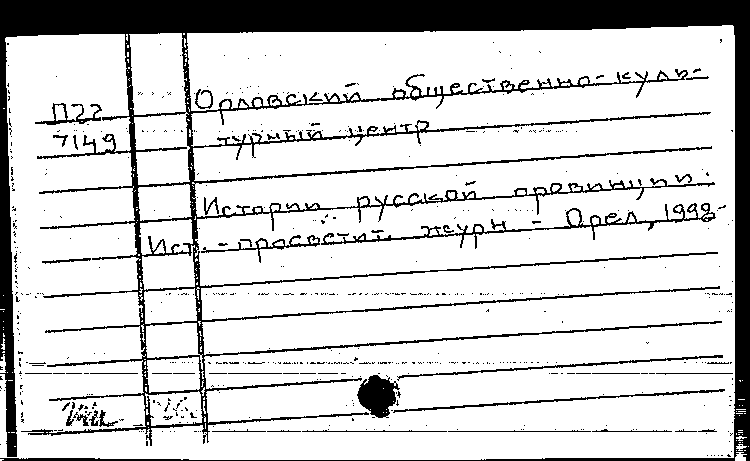 П22 Орловский общественно-куль-
7149 турный центр
Истории русской провинции:
Ист.-просветит. журн - Орел, 1998-